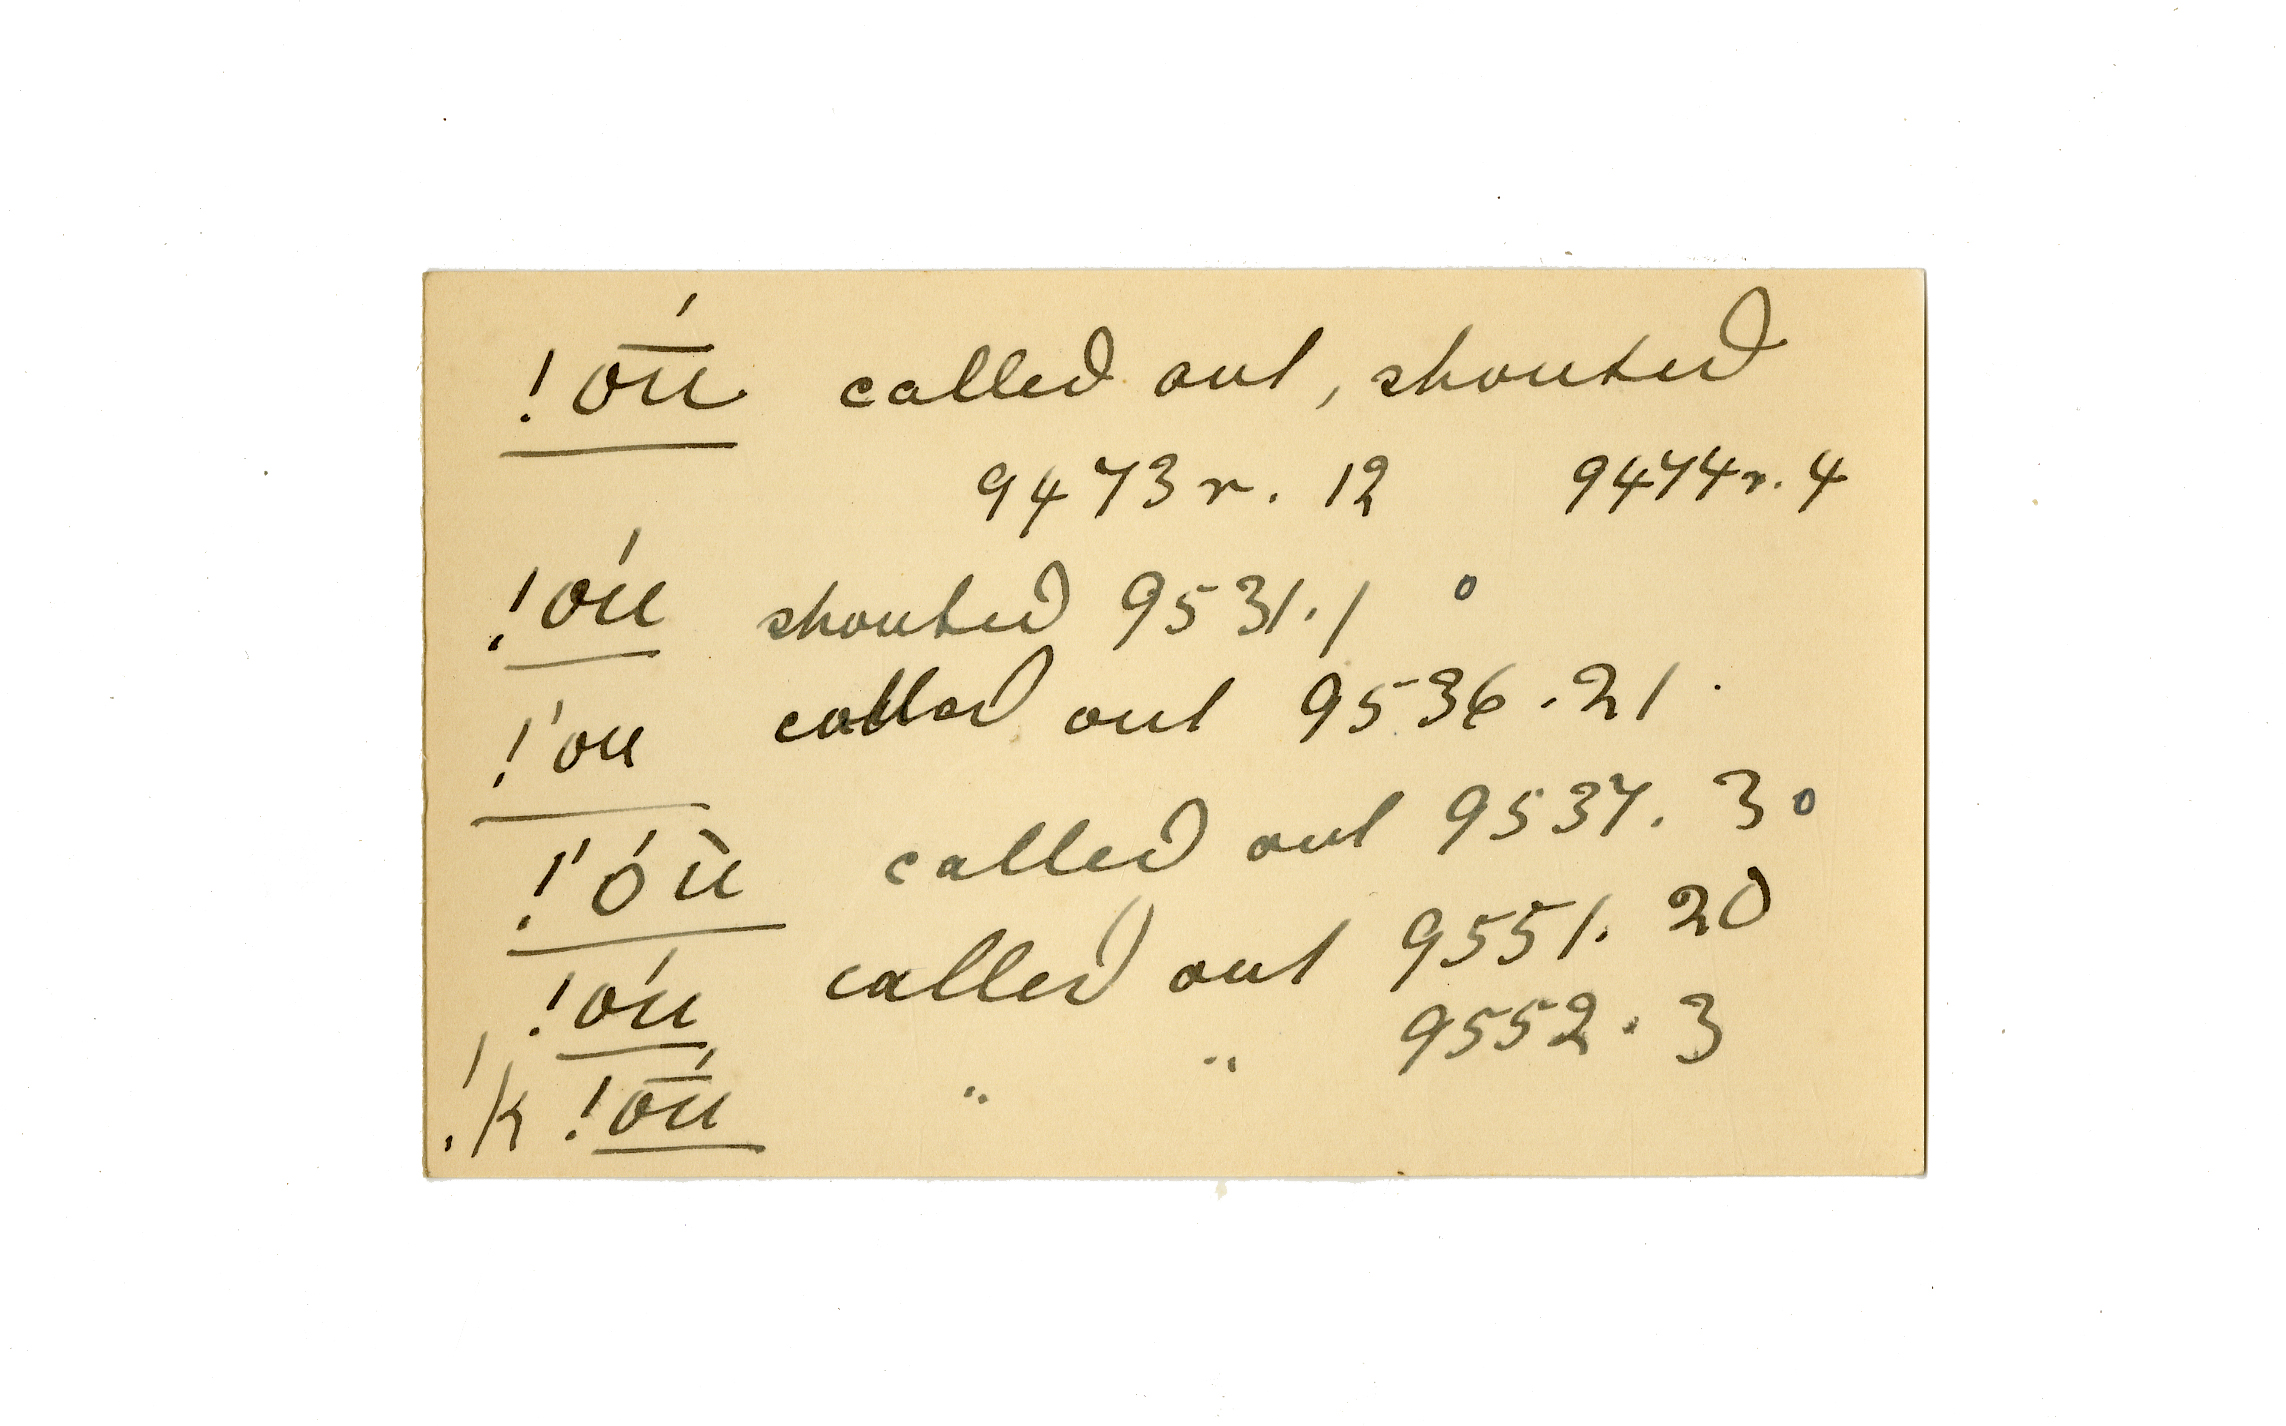 !ṓü called out, shouted
9473r. 12 9474r. 4
!óü shouted 9531.1 o
!'oü called out 9536.21.
!'óū called out 9537. 3 o
!oǘ called out 9551. 20
!k !ṓü " " 9552. 3